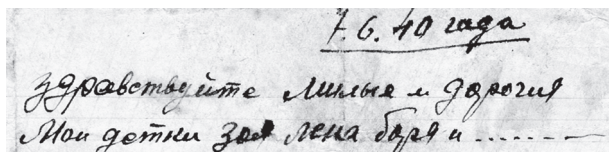 7.6.40 года
здравствуйте милыя и дорогия
Мои детки зоя лена боря и .........